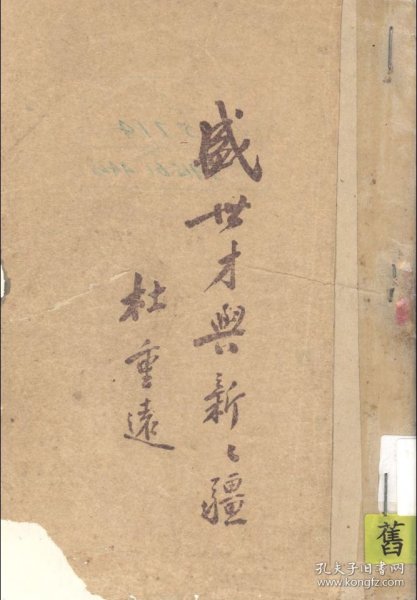 盛世才與新〻疆
杜重遠
舊
孔夫子旧书网